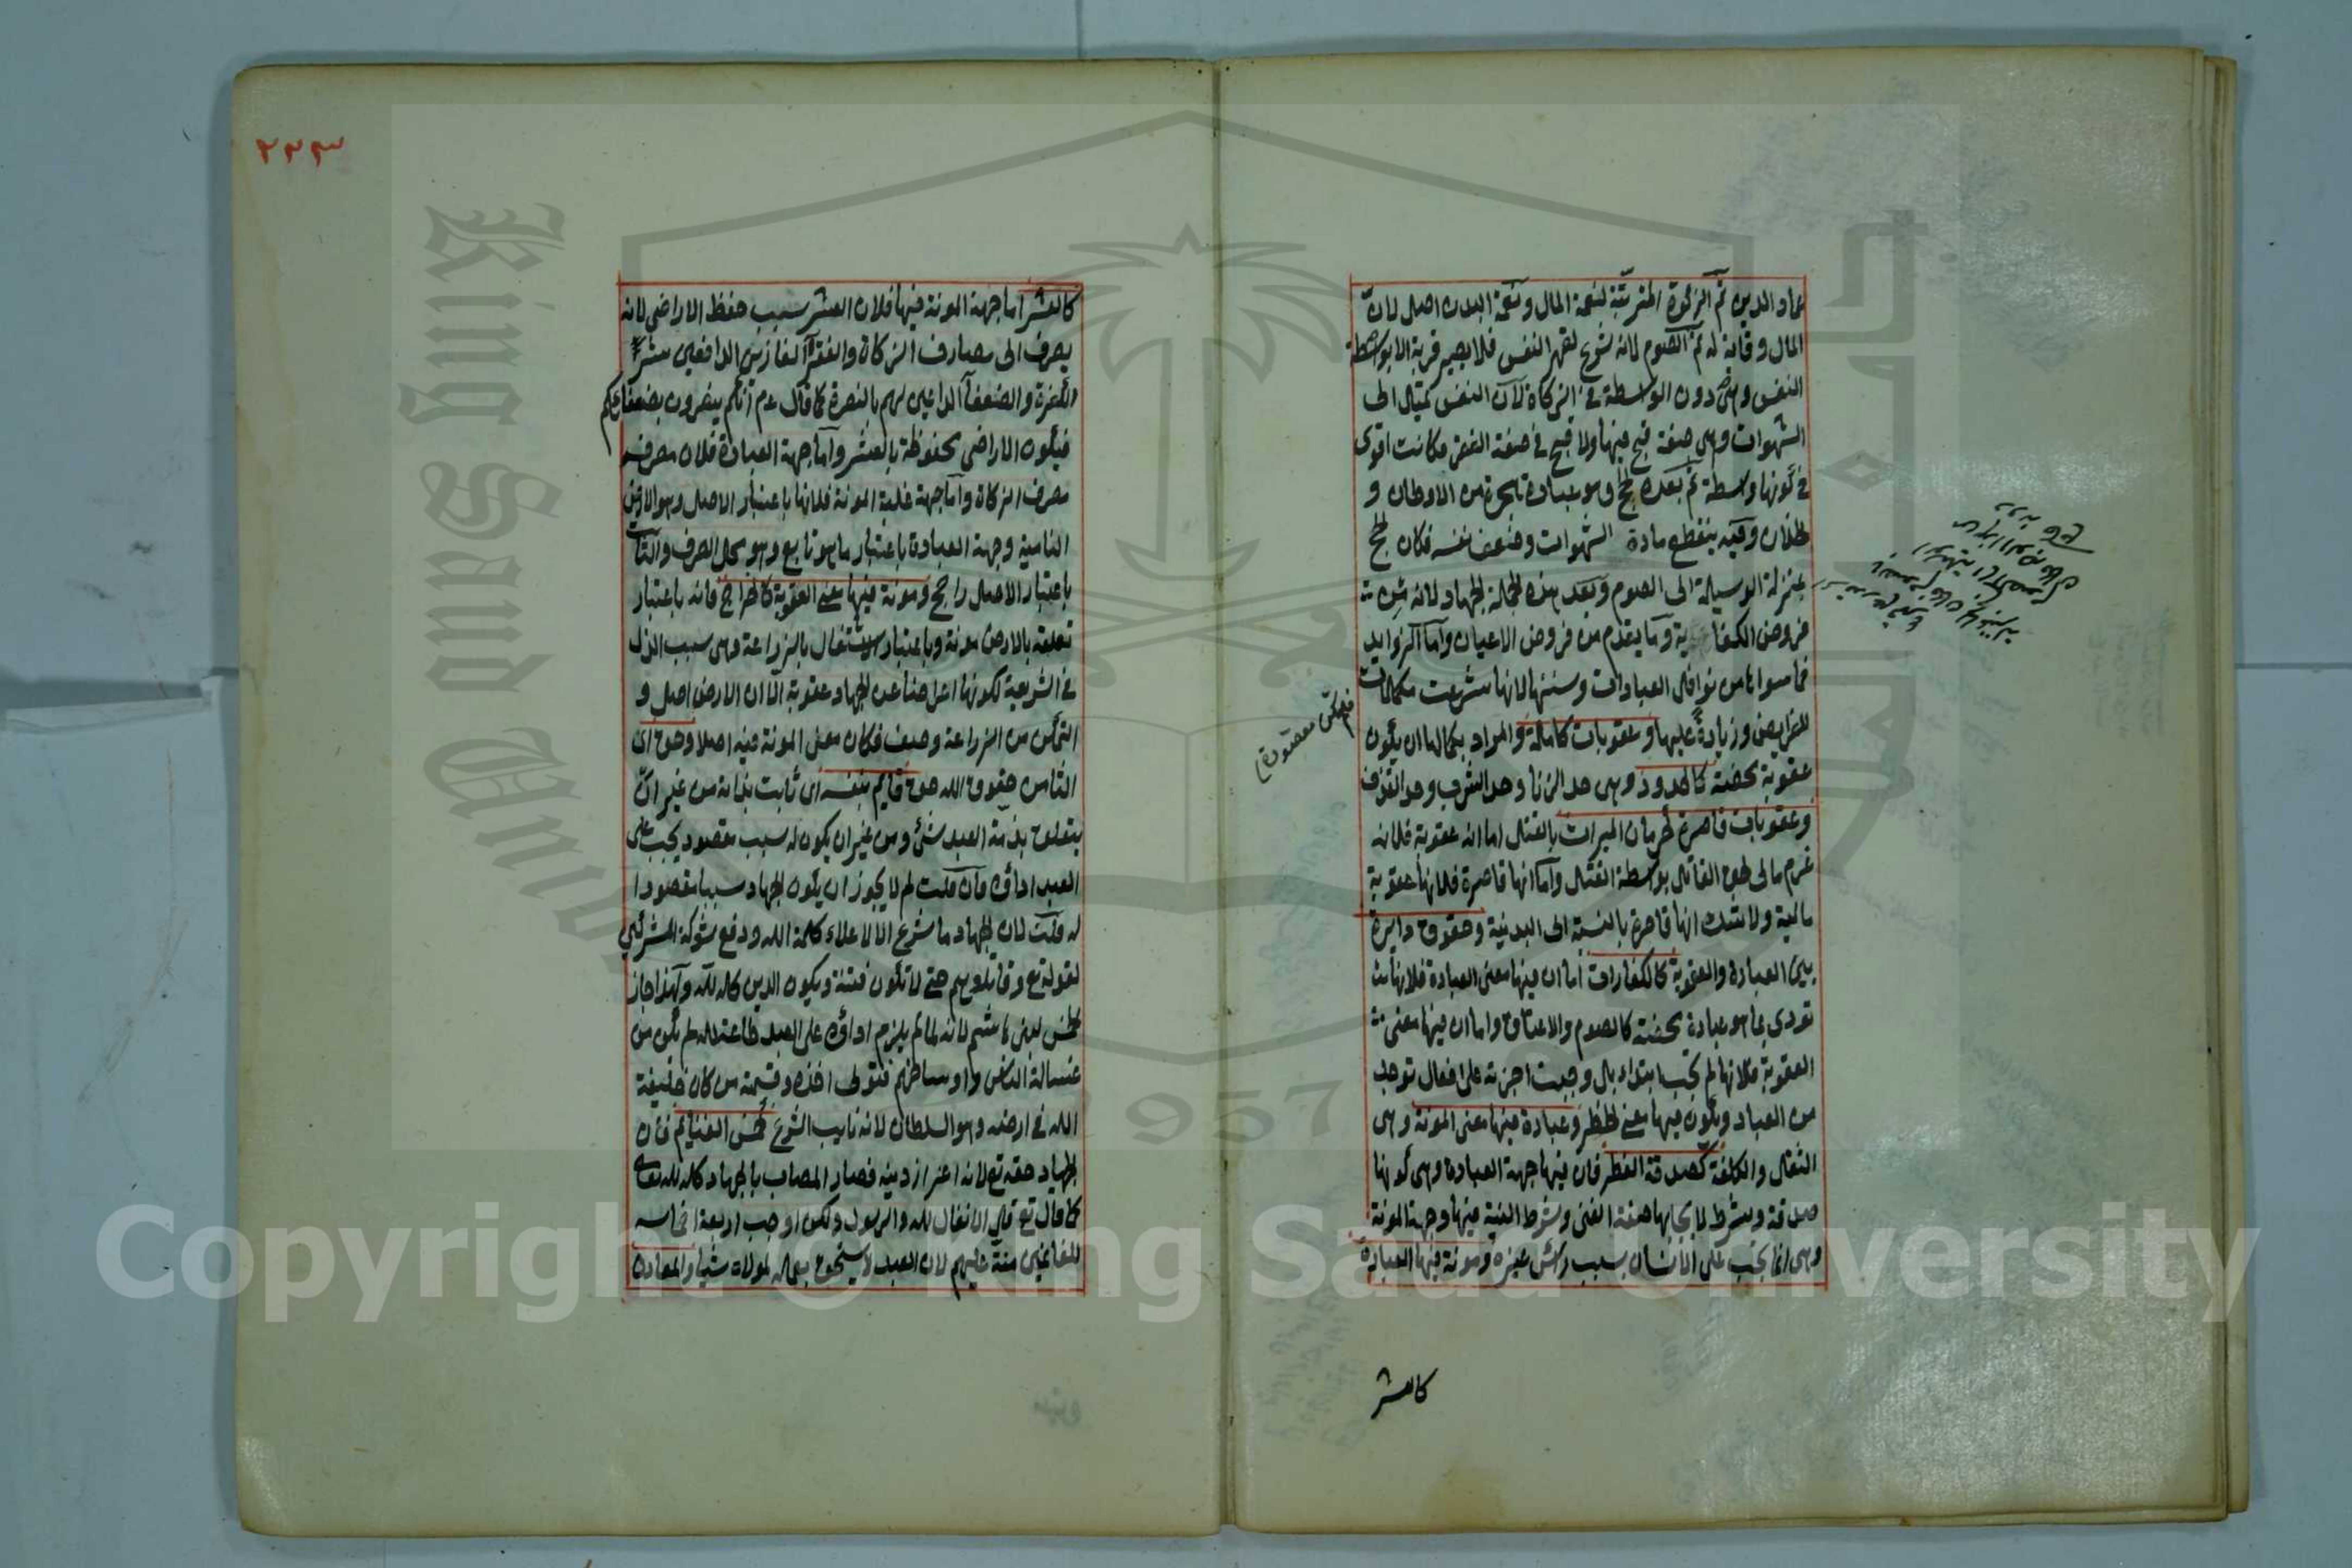 عماد الدين ثم الزكوة المترتبة لنعمة المال ونعمة البدن اصل لان
المال وقاية له ثم الصوم لانه شرع لقهر النفس فلا يصير قربة الا بواسطة
النفس وهي دون الواسطة في الزكاة لان النفس تميال الى
الشهوات وهي صفة قبح فيها ولا قبح في صفة الفقر فكانت اقوى
في كونها واسطة ثم بعده الحج وهو عبادة هجرة من الاوطان و
الخلان وفيه ينقطع مادة الشهوات وضعف نفسه فكان الحج
بمنزلة الوسيلة الى الصوم وبعد هذه الجملة الجهاد لانه من
فروض الكفاية وما يقدم من فروض الاعيان واما الزوايد
فما سواها من نوافل العبادات وسننها لانها شرعت مكملات
للفرايض وزيادة عليها وعقوبات كاملة والمراد بكمالها ان يكون
عقوبة محضة كالحدود وهي حد الزنا وحد الشرب وحد القذف
وعقوبات قاصرة كحرمان الميراث بالقتل اما انه عقوبة فلانه
غرم مالى لحق القاتل بواسطة القتل واما انها قاصرة فلانها عقوبة
مالية ولا شك انها قاصرة بالنسبة الى البدنية وحقوق دايرة
بين العبادة والعقوبة كالكفارات اما ان فيها معنى العبادة فلانها
تؤدى بما هو عبادة محضة كالصوم والاعتاق واما ان فيها معنى
العقوبة فلانها لم تجب ابتداء بل وجبت اجزية على افعال توجد
من العباد ويكون فيها معنى الحظر وعبادة فيها معنى المونة وهي
الثقل والكلفة كصدقة الفطر فان فيها جهة العبادة وهي كونها
صدقة وشرط لايجابها صفة الغنى وشرط النية فيها وجهة المونة
وهي انما تجب على الانسان بسبب راس غيره ومونة فيها العبادة
كالعشر
كالعشر اما جهة المونة فيها فلان العشر سبب حفظ الاراضى لانه
يصرف الى مصارف الزكاة والفقراء الغازين الدافعين شر
الكفرة والضعفاء الداعين لهم بالنصرة كما قال عم انكم ينصرون بضعفاءكم
فيكون الاراضى محفوظة بالعشر واما جهة العبادة فلان مصرفه
مصرف الزكاة واما جهة غلبة المونة فلانها باعتبار الاصل وهو الارض
النامية وجهة العبادة باعتبار ما هو تابع وهو محل الصرف والثابت
باعتبار الاصل راجح ومونة فيها معنى العقوبة كالخراج فانه باعتبار
تعلقه بالارض مونة وباعتبار الاشتغال بالزراعة وهي سبب الذل
في الشريعة لكونها اعراضا عن الجهاد عقوبة الا ان الارض اصل و
التمكن من الزراعة وصف فكان معنى المونة فيه اصلا وحق اى
الثامن حقوق الله حق قايم بنفسه اى ثابت بذاته من غير ان
يتعلق بذمة العبد شئ ومن غير ان يكون له سبب مقصود يجب على
العبد اداؤه فان قلت لم لا يجوز ان يكون الجهاد سببا مقصودا
له قلت لان الجهاد ما شرع الا لاعلاء كلمة الله ودفع شوكة المشركين
لقوله تع وقاتلوهم حتى لا تكون فتنة ويكون الدين كله لله ولهذا جاز
الخمس لبنى هاشم لانه لما لم يلزم اداؤه على العبد طاعة لله لم يكن من
غسالة الناس واوساخهم فتولى اخذه وقسمته من كان خليفة
الله في ارضه وهو السلطان لانه نايب الشرع كخمس الغنايم فان
الجهاد حقه تع لانه اعزاز دينه فصار المصاب بالجهاد كله لله تعالى
كما قال تع قل الانفال لله والرسول ولكن اوجب اربعة اخماسه
للغانمين منة عليهم لان العبد لا يستحق بعمله لمولاه شيا والمعادن